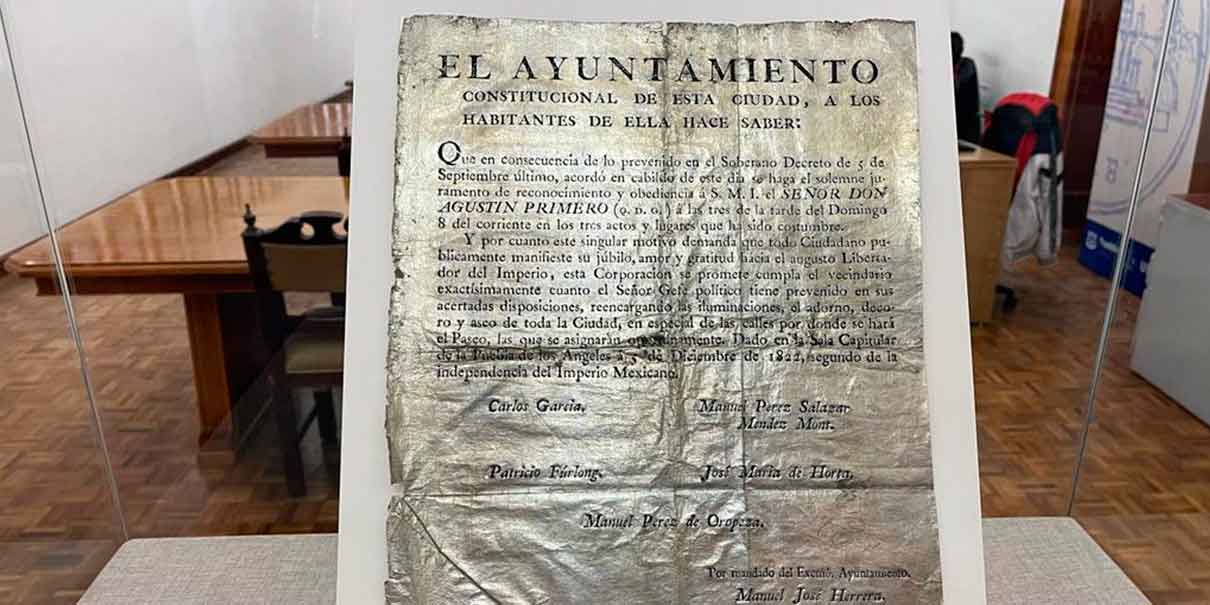 EL AYUNTAMIENTO
CONSTITUCIONAL DE ESTA CIUDAD, A LOS
HABITANTES DE ELLA HACE SABER:
Que en consecuencia de lo prevenido en el Soberano Decreto de 5 de
Septiembre último, acordó en cabildo de este dia se haga el solemne ju-
ramento de reconocimiento y obediencia á S. M. I. el SEÑOR DON
AGUSTIN PRIMERO (Q. D. G.) á las tres de la tarde del Domingo
8 del corriente en los tres actos y lugares que ha sido costumbre.
Y por cuanto este singular motivo demanda que todo Ciudadano pu-
blicamente manifieste su júbilo, amor y gratitud hácia el augusto Liberta-
dor del Imperio, esta Corporacion se promete cumpla el vecindario
exactísimamente cuanto el Señor Gefe político tiene prevenido en sus
acertadas disposiciones, reencargando las iluminaciones, el adorno, deco-
ro y aseo de toda la Ciudad, en especial de las calles por donde se hará
el Paseo, las que se asignarán oportunamente. Dado en la Sala Capitular
de la Puebla de los Angeles á 5 de Diciembre de 1822, segundo de la
independencia del Imperio Mexicano.
Carlos Garcia.
Manuel Perez Salazar
Mendez Mont.
Patricio Fúrlong.
José Maria de Horta.
Manuel Perez de Oropeza.
Por mandado del Excmô. Ayuntamiento.
Manuel José Herrera.